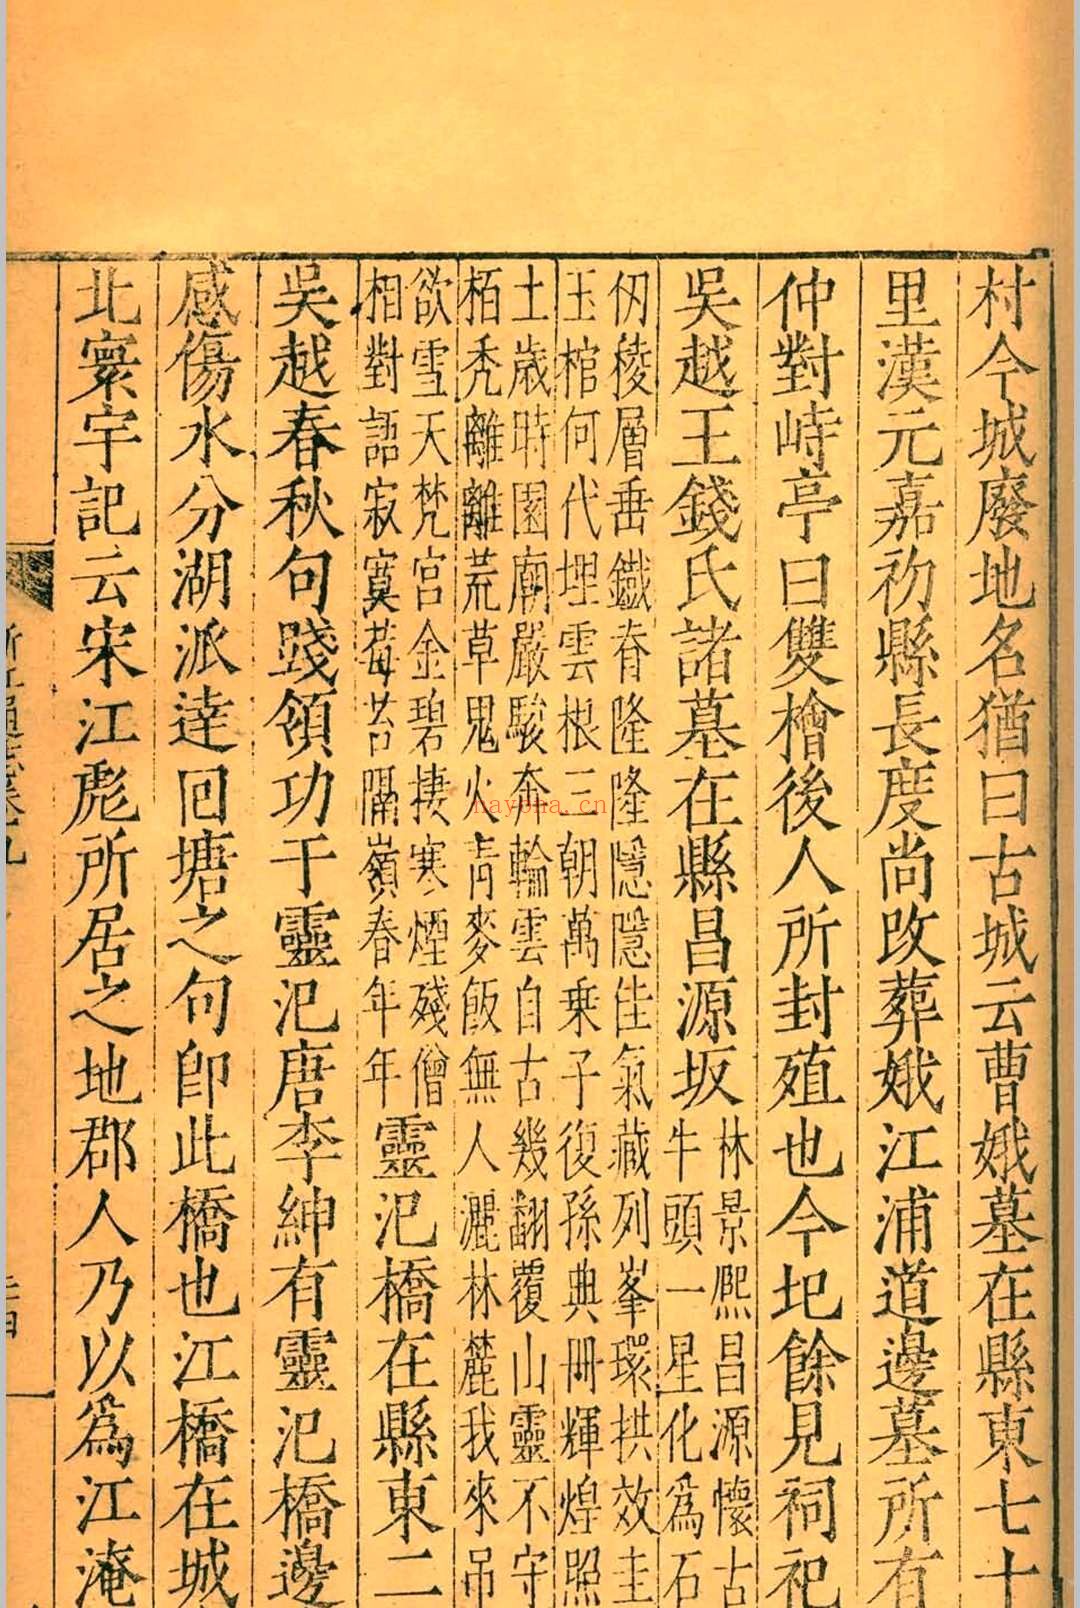 村今城廢地名猶曰古城云曹娥墓在縣東七十
里漢元嘉初縣長度尚改葬娥江浦道邊墓所有
仲對峙亭曰雙檜後人所封殖也今圮餘見祠祀
吳越王錢氏諸墓在縣昌源坂
林景熈昌源懷古
牛頭一星化為石
仞稜層垂鐵脊隆隆隱隱佳氣藏列峯環拱效圭
玉棺何代埋雲根三朝萬乗子復孫典冊輝煌照
土歲時園廟嚴駿奔輪雲自古幾翻覆山靈不守
栢禿離離荒草鬼火青麥飯無人灑林麓我來吊
欲雪天梵宮金碧棲寒煙殘僧
相對語寂寞莓苔隔嶺春年年
靈氾橋在縣東二
吳越春秋句踐領功于靈氾唐李紳有靈氾橋邊
感傷水分湖派達回塘之句卽此橋也江橋在城
北寰宇記云宋江彪所居之地郡人乃以為江淹
haybna.cn